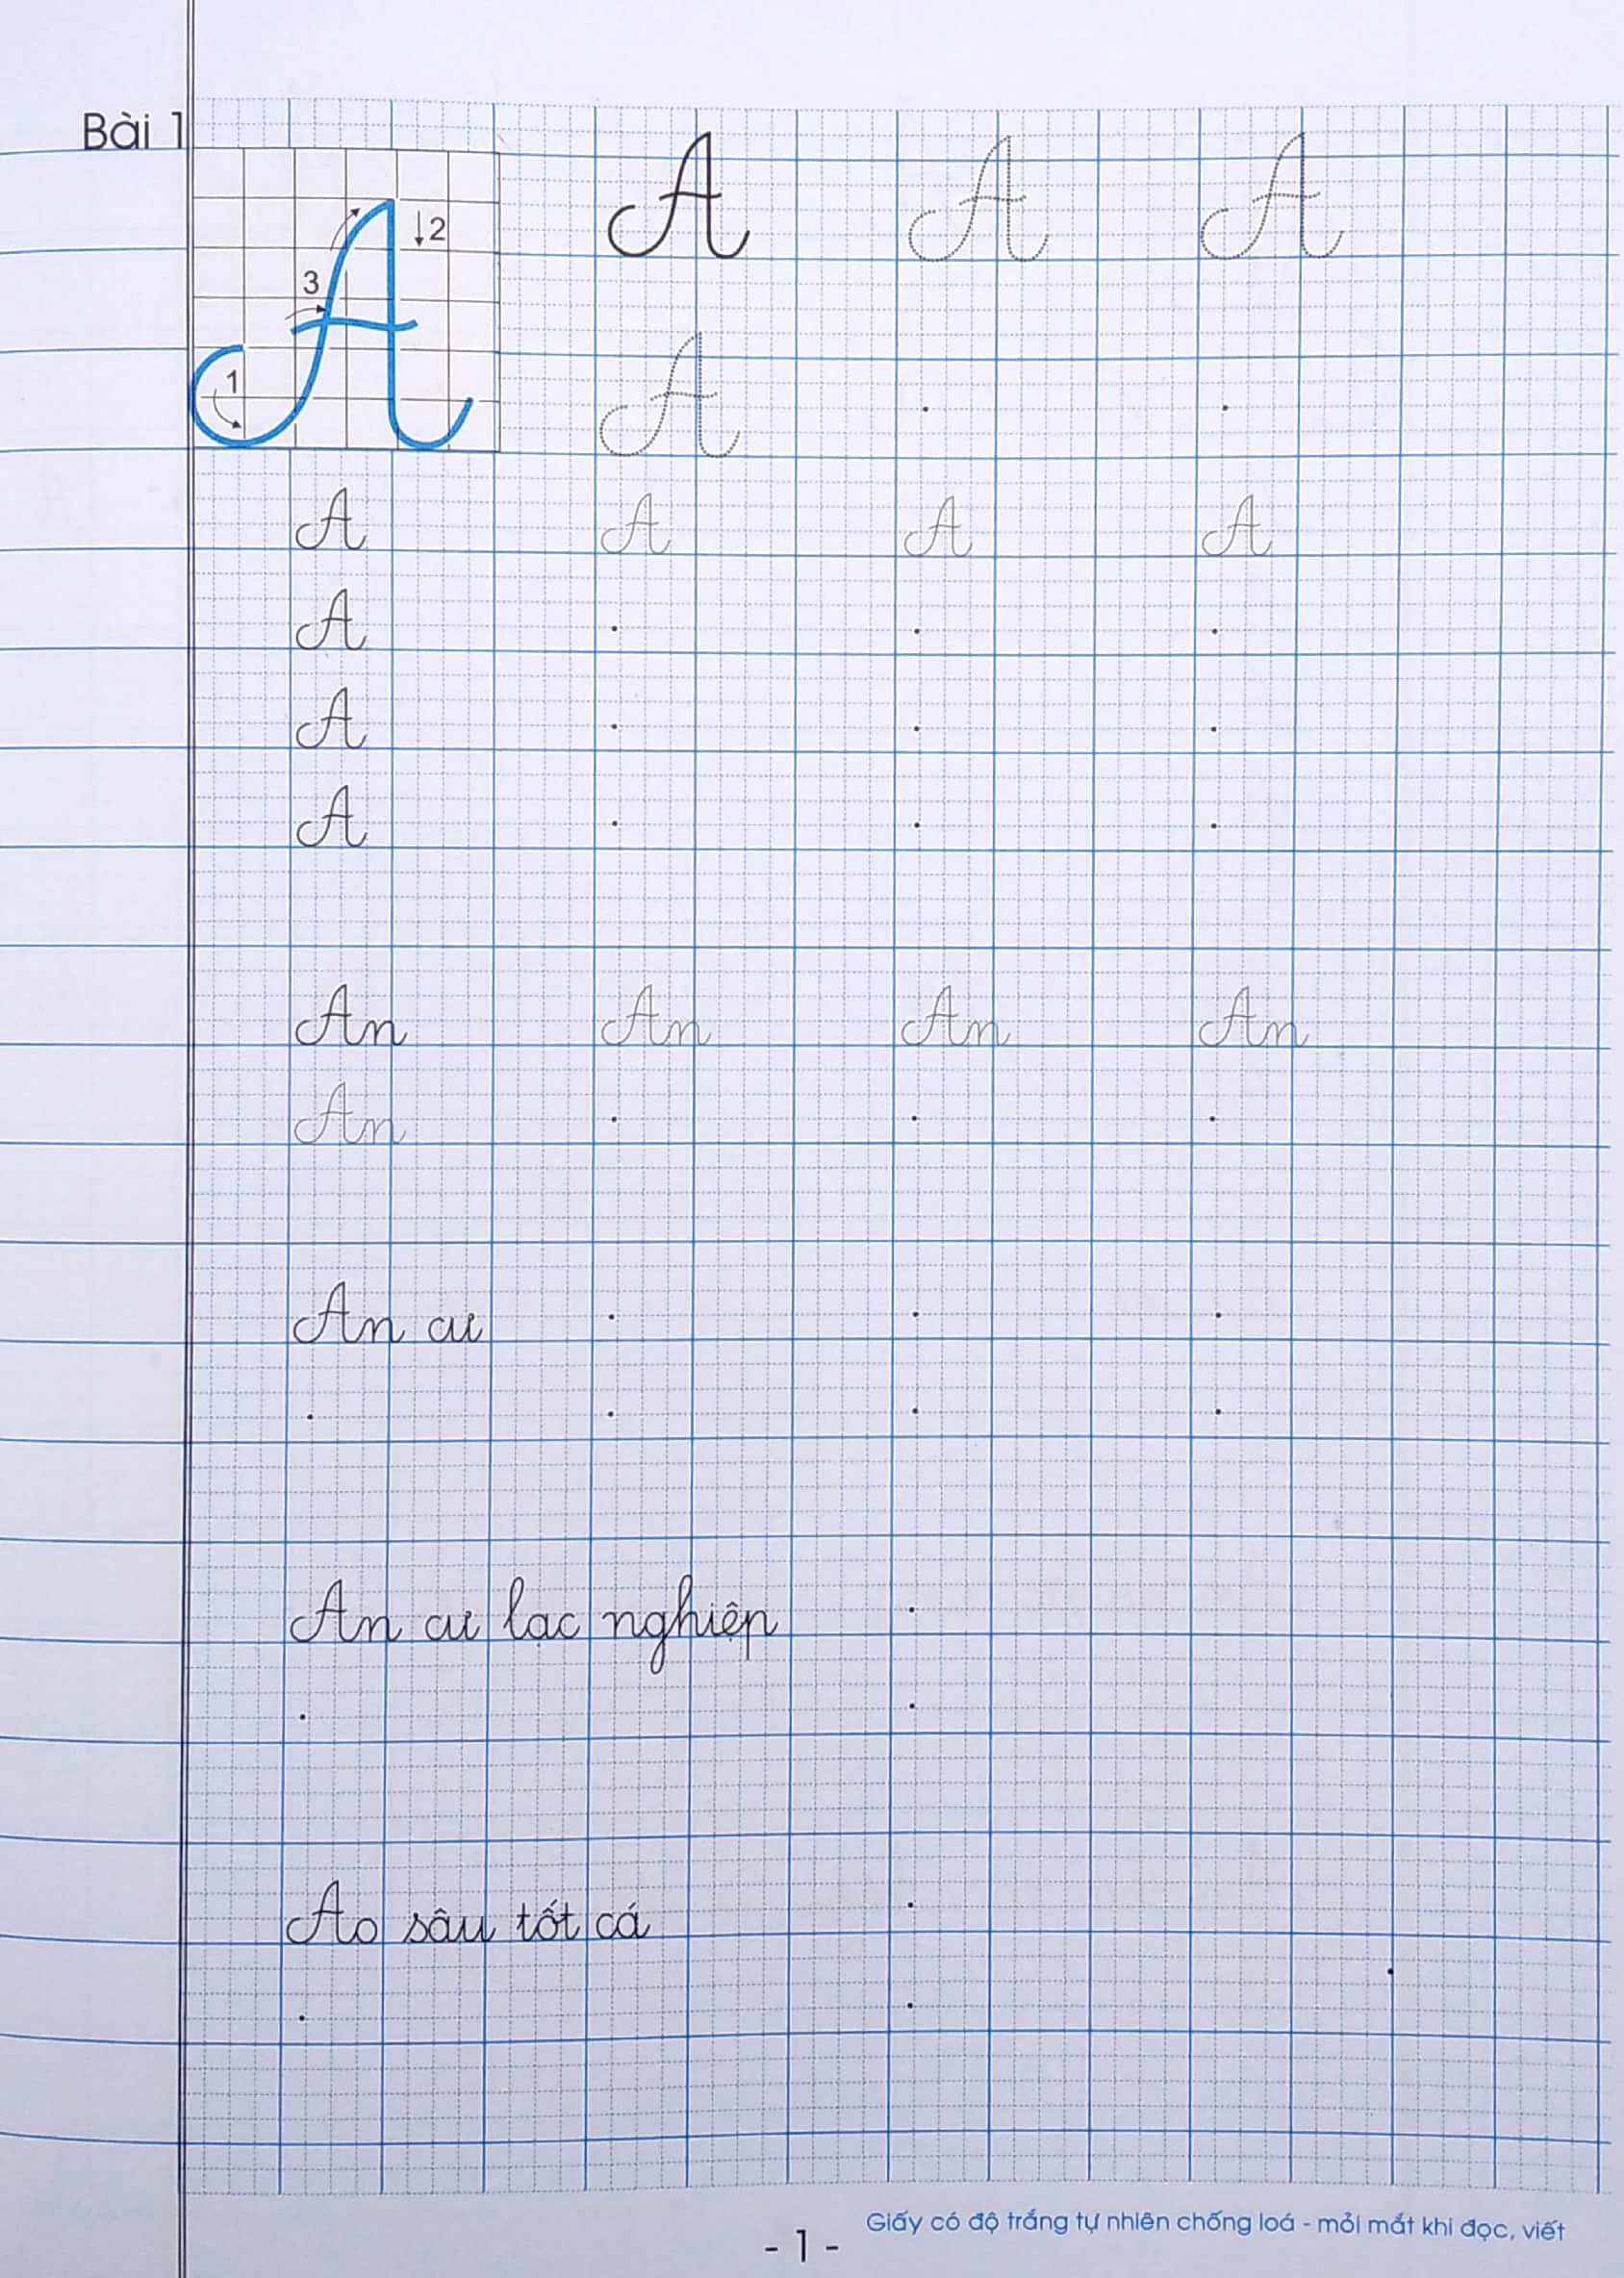 Bài 1
1 2 3
A A A
A
A A A A
A
A
A
An An An An
An
An cư
An cư lạc nghiệp
Ao sâu tốt cá
Giấy có độ trắng tự nhiên chống loá - mỏi mắt khi đọc, viết
- 1 -